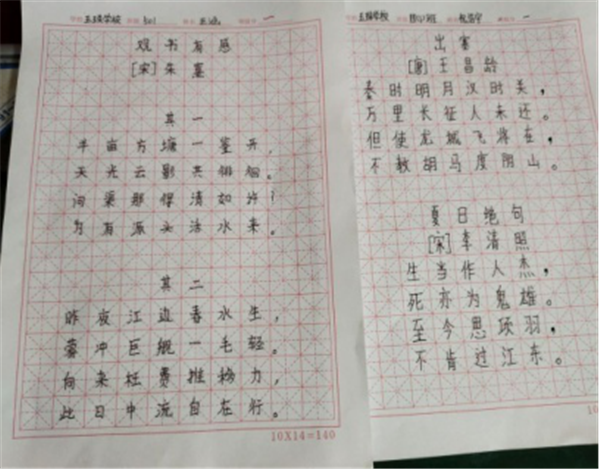 观书有感
[宋]朱熹
其一
半亩方塘一鉴开,
天光云影共徘徊。
问渠那得清如许?
为有源头活水来。
其二
昨夜江边春水生,
蒙冲巨舰一毛轻。
向来枉费推移力,
此日中流自在行。
10X14=140
五臻学校
出塞
[唐]王昌龄
秦时明月汉时关,
万里长征人未还。
但使龙城飞将在,
不教胡马度阴山。
夏日绝句
[宋]李清照
生当作人杰,
死亦为鬼雄。
至今思项羽,
不肯过江东。
10